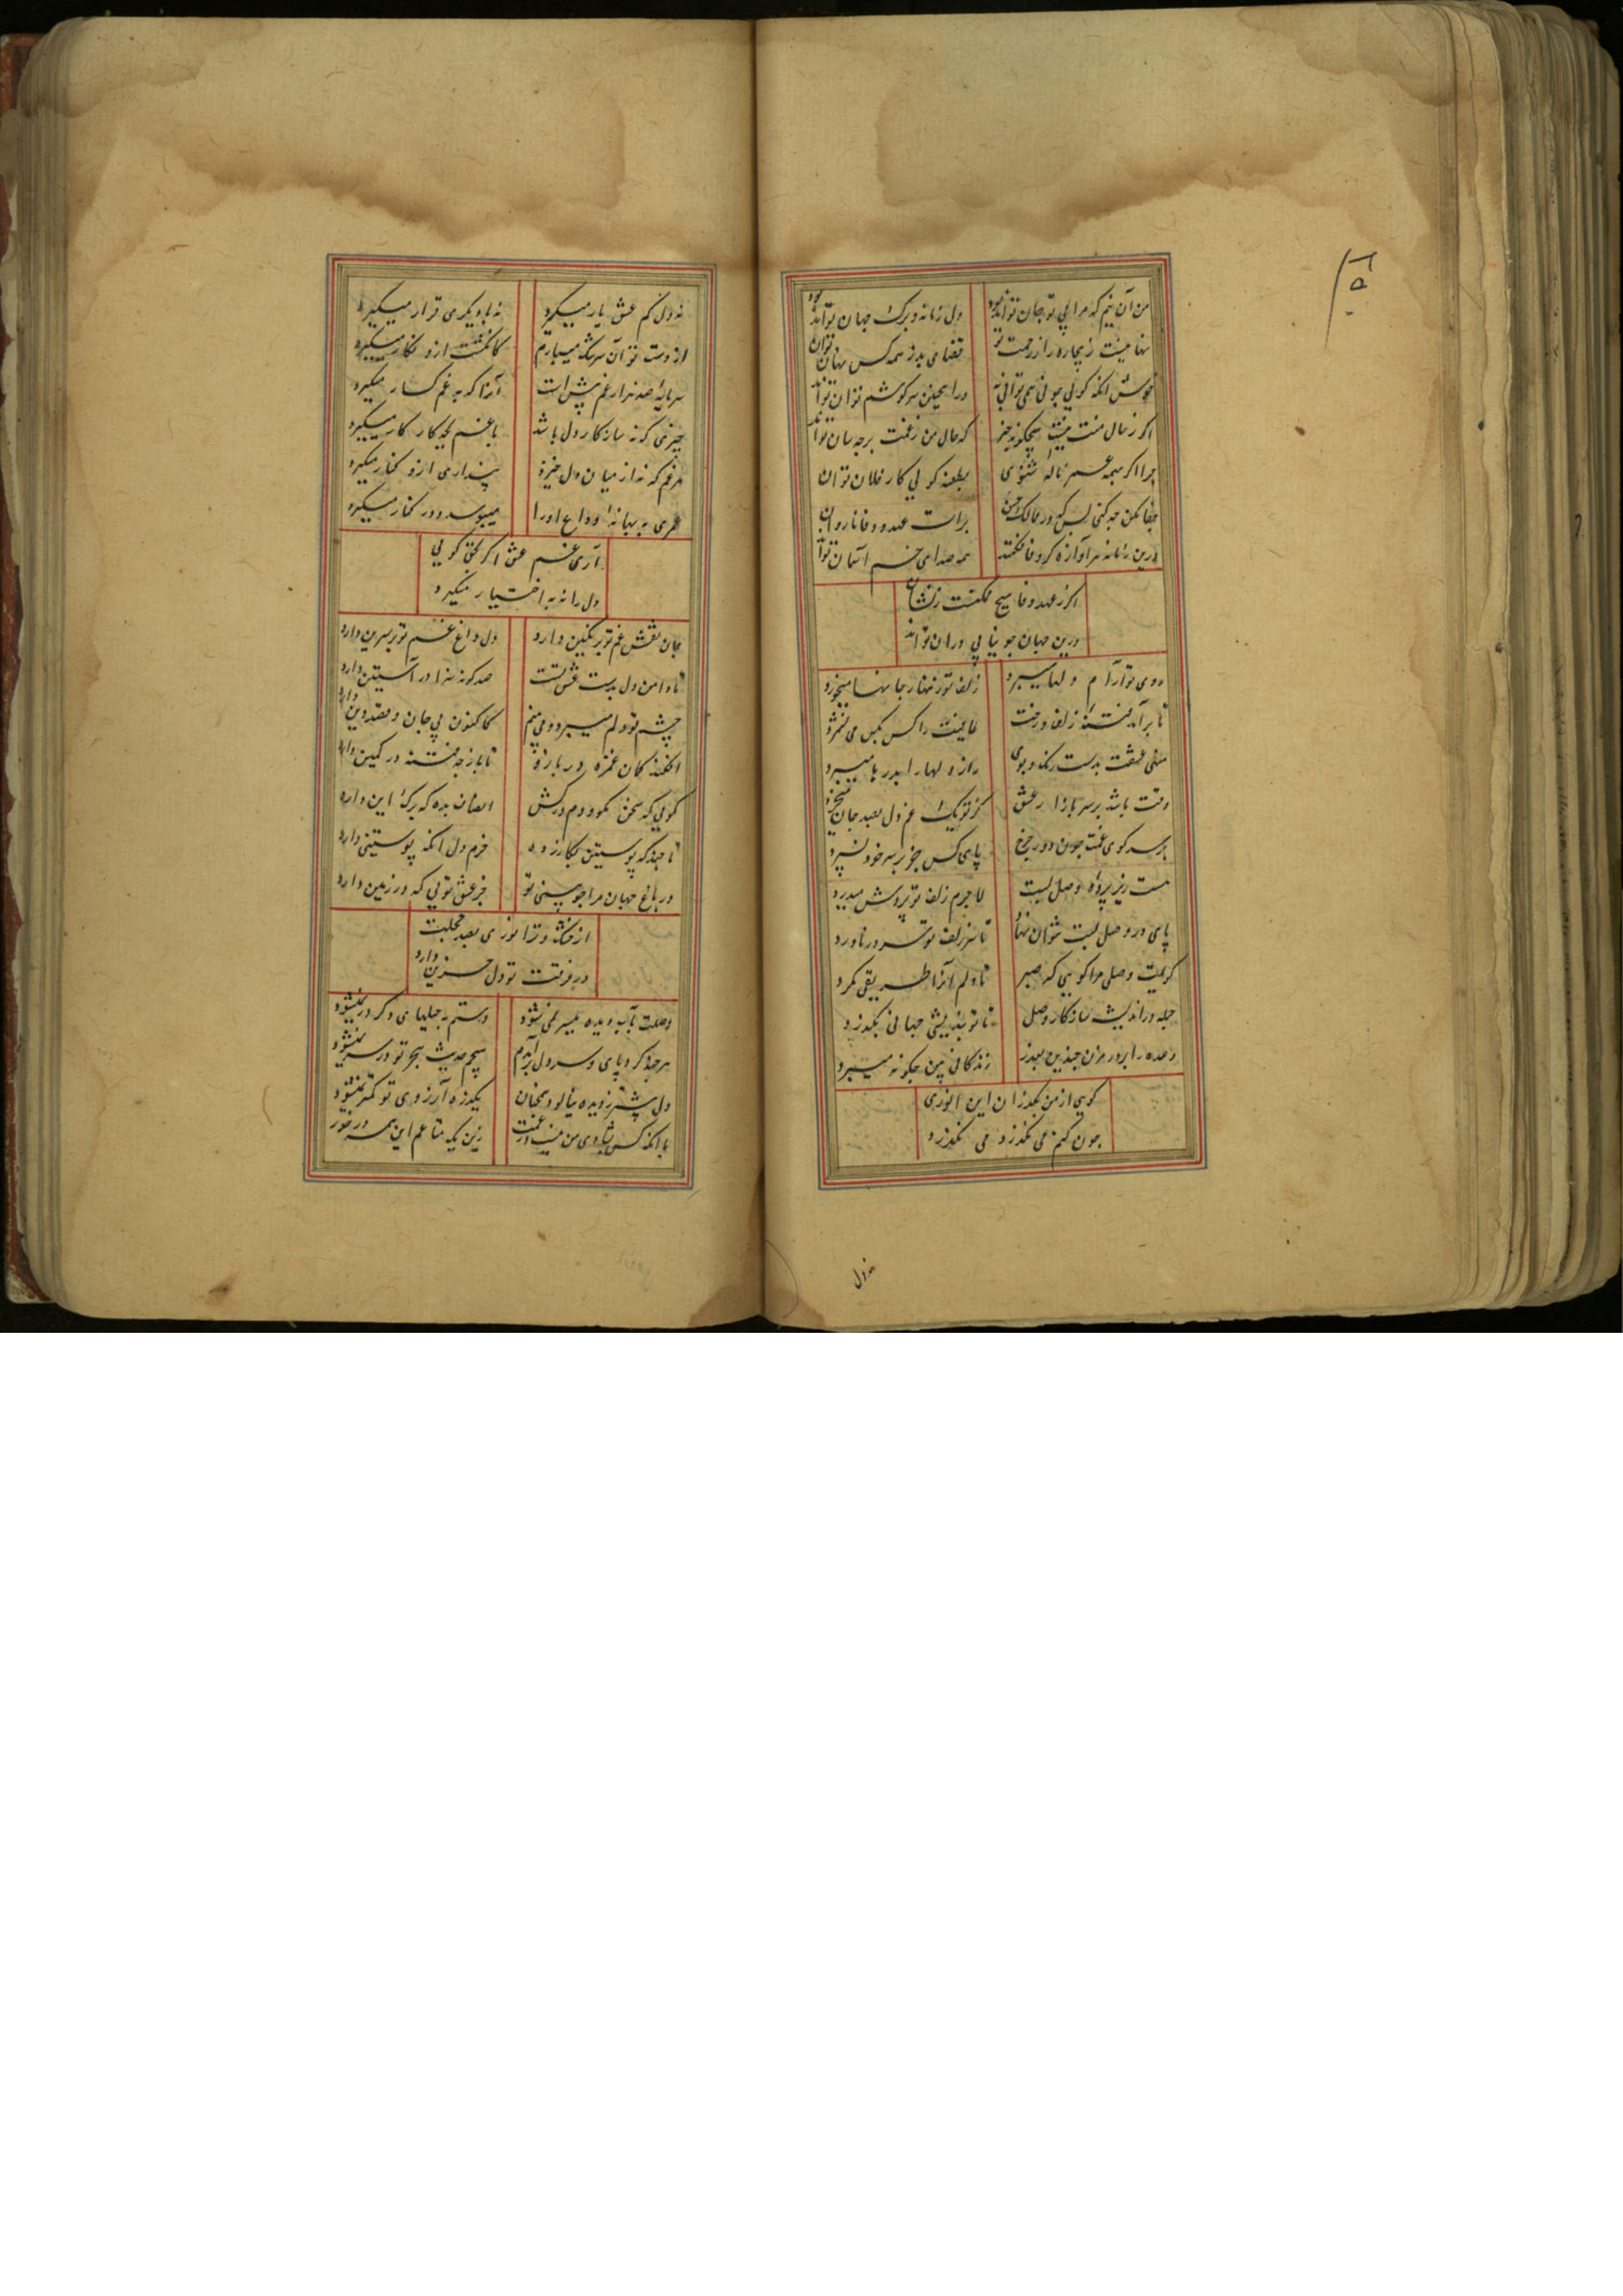 من آن نیم که مرا بی تو جان تواند بود دل زمانه و برگ جهان تواند بود
بها منیت ز بیچاره را ز رحمت تو قضای بد ز همه کس نهان توان
خوش انکه کویی چونی همی توانی نه در انچنین سر و کوشم توان تواند
اکر ز حال منت نیست هیچکونه خبر که حال من ز غمت بر چه سان تواند
چرا اکر همه عمر ناله شنوی بطعنه کویی کار فلان توان
جفا مکن چه کنی بس که در ممالک حسن برات عهد و وفا ناروان
درین زمانه هر آوازه کز وفا فکنند همه صدای خم آسمان تواند
اکر ز عهد و وفا هیچ ممکنست نشان
درین جهان چو نیابی در ان تواند
روی تو آرام دلها میبرد زلف تو زنهار جانها میخورد
تا برآمد فتنه زلف و رخت عافیت را کس بکس می نشمرد
منهی عشقت بدست رنک و بوی راز دلها را بدرها میبرد
وقت باشد بر سر بازار عشق کز تو یک غم دل بصد جان میخرد
بر سر کوی غمت چون دور چرخ پای کس جز بر سر خود نسپرد
هست زیر پرده وصل لبت لاجرم زلف تو پردش میدرد
پای در وصل لبت نتوان نهاد تا سر زلف تو سر در ناورد
کویمت وصلی مرا کویی که صبر تا دلم آنرا طریقی مکرد
جمله در اندیشه سازکار وصل تا تو بندیشی جهانی بگذرد
وعده را بر در مزن چندین بعذر زندکانی بین چکونه میبرد
کویی از من بگذران این انوری
چون کنم می نگذرد می نگذرد
نه دل
نه دل کم عشق یار میکیرد نه با دیکری قرار میکیرد
از دست تو آن سرشک میبارم کانکشت ازو نکار میکیرد
سرمایه صد هزار غم پیش است آنرا که به غم کسار میکیرد
چیزی که نه سازکار دل باشد با غم بچه کار کار میکیرد
هر غم که نه از میان دل خیزد پنداری ازو کنار میکیرد
عمری به بهانه وداع او را میبوسد و در کنار میکیرد
آری غم عشق اکر بحق کویی
دل را نه به اختیار میکیرد
جان نقش غم تو بر نکین دارد دل داغ غم تو بر سرین دارد
تا دامن دل بدست عشق تست صد کونه هنر در آستین دارد
چشم تو دلم میبرد و می بینم کاکنون پی جان و قصد دین دارد
افکند کمان غمزه در بازو تا باز چه فتنه در کمین دارد
کویی که سخن مکو و دم درکش انصاف بده که برک این دارد
تا چند که پوستین بکازر ده خرم دل انکه پوستینی دارد
در باغ جهان مرا چو میبینی تو جز عشق تویی که در زمین دارد
از خشک و تر انوری بصد محلت
در فرقت تو دل حزین دارد
وصلت بآب دیده میسر نمی شود دستم به حیلهای دکر در نمیشود
هر چند کرد پای و سر دل برآمدم هیچم حدیث هجر تو در سر نمیشود
دل بیشتر ز دیده بپالود و همچنان یکذره آرزوی تو کمتر نمیشود
با انکه کس بشادی من نیست در غمت زین یک متاعم این همه در خور